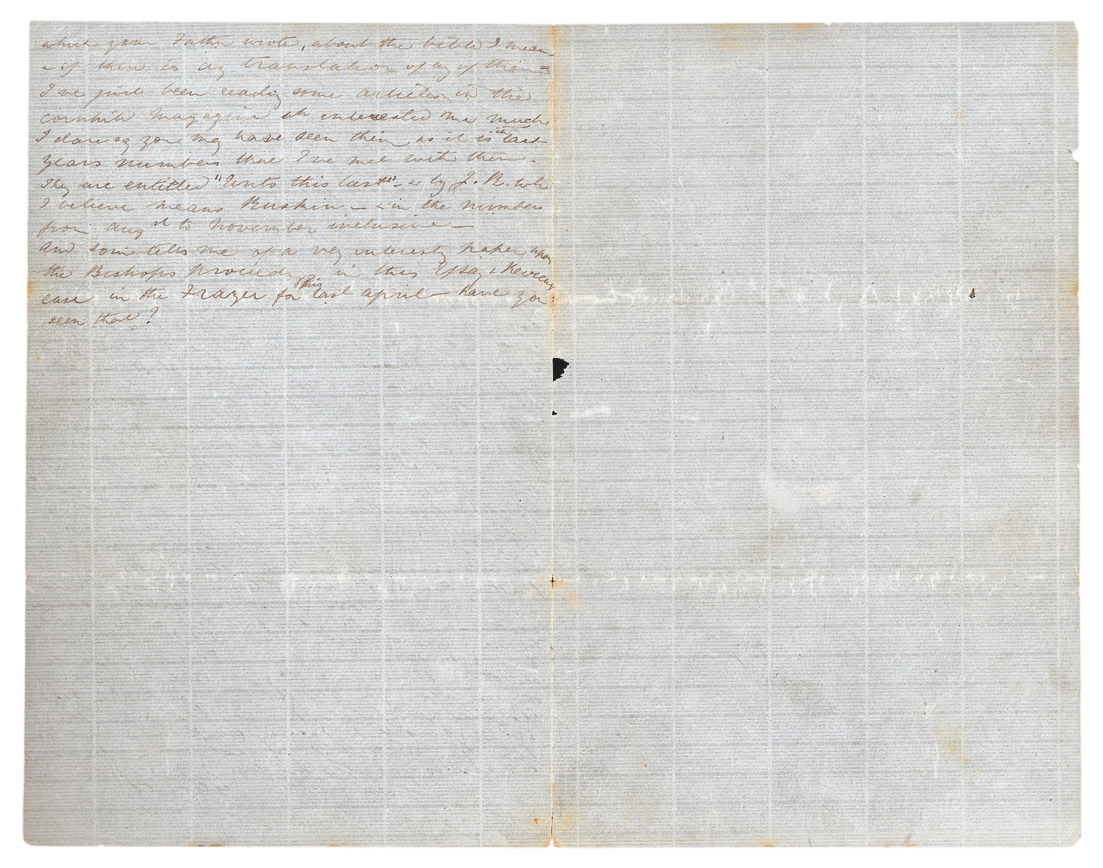 which your Father wrote, about the bible I mean
– if there is any translation of any of them –
I've just been reading some articles in the
cornhill magazine wh interested me much
I dare say you may have seen them as it is in last
years numbers that I've met with them –
They are entitled "Unto this last" – & by J. R. wh
I believe means Ruskin – & in the numbers
from augst to November inclusive –
and some tells me of a very interesty paper upon
the Bishops Proceedg in this Essay & Reviews
case in the Frazer for this last april – have you
seen that?